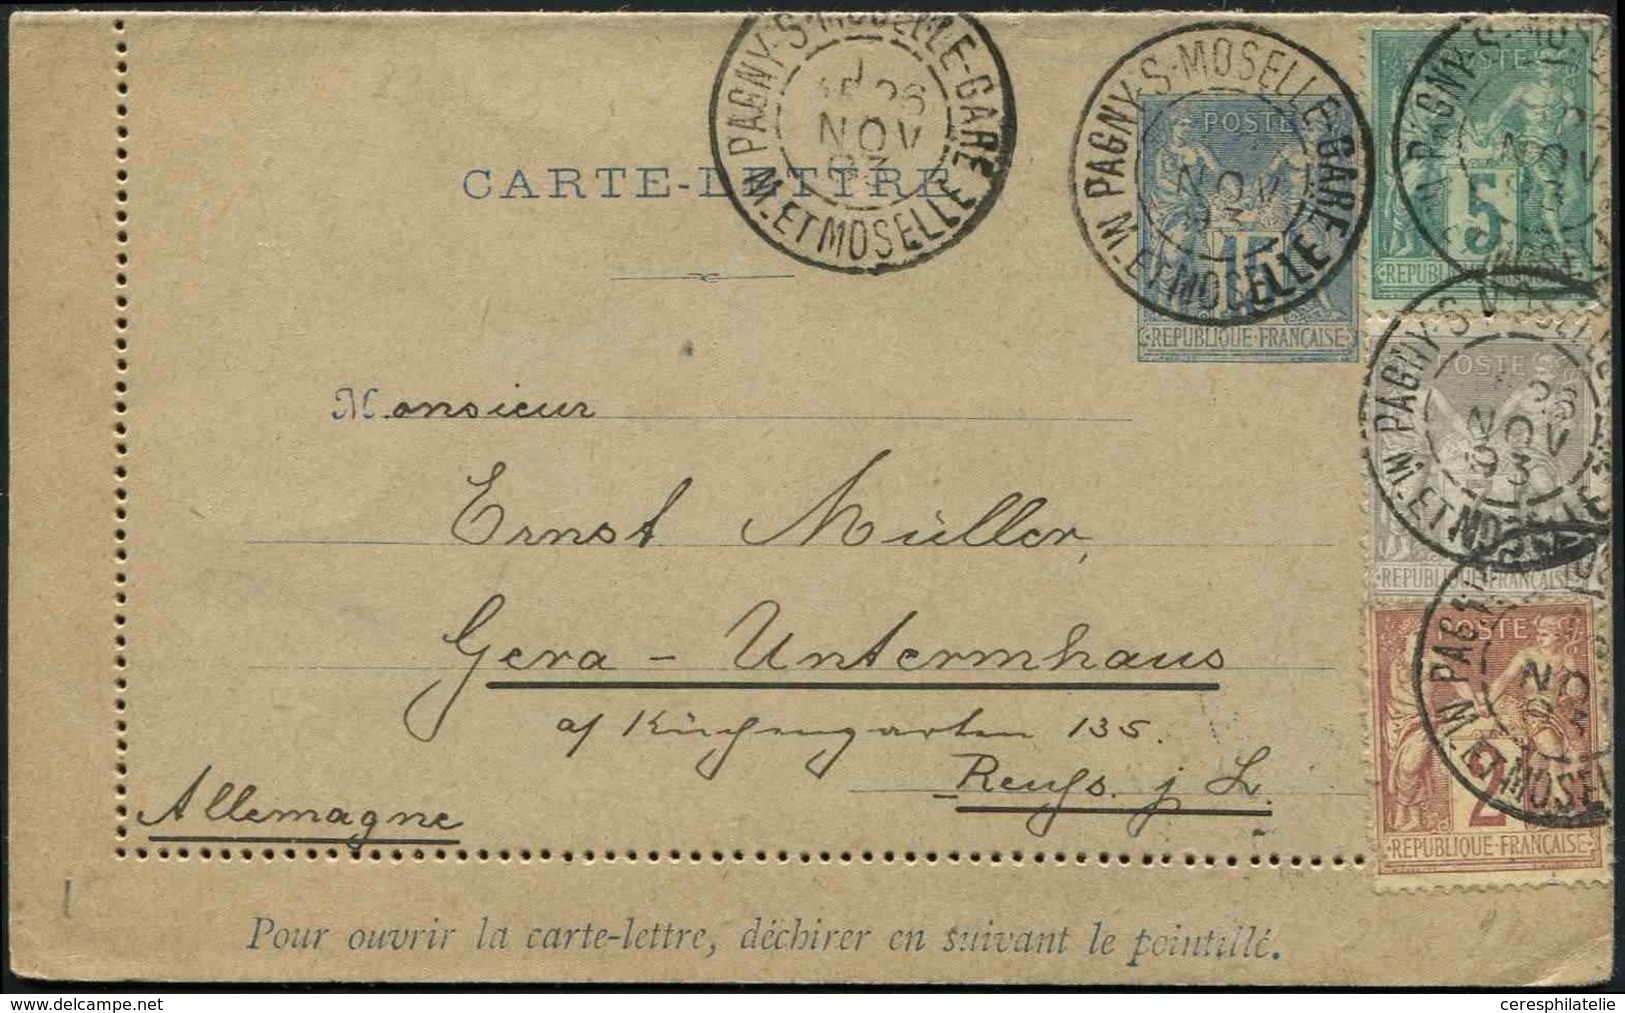 PAGNY-S-MOSELLE-GARE
26
NOV
93
M.-ET MOSELLE
PAGNY-S-MOSELLE-GARE
NOV
93
M.-ET MOSELLE
POSTE
15
REPUBLIQUE FRANÇAISE
PAGNY-S-MOS
NOV
POSTE
5
REPUBLIQUE
CARTE-LETTRE
PAGNY-S-MOSELLE
26
NOV
93
M.-ET MOSELLE
POSTE
REPUBLIQUE FRANÇAISE
Monsieur
Ernst Müller,
Gera - Untermhaus
a/ Küchengarten 135.
Reuss. j. L.
Allemagne
PAGN
NO
M.-ET MOSEL
POSTE
2
REPUBLIQUE FRANÇAISE
1
Pour ouvrir la carte-lettre, déchirer en suivant le pointillé.
www.delcampe.net
ceresphilatelie